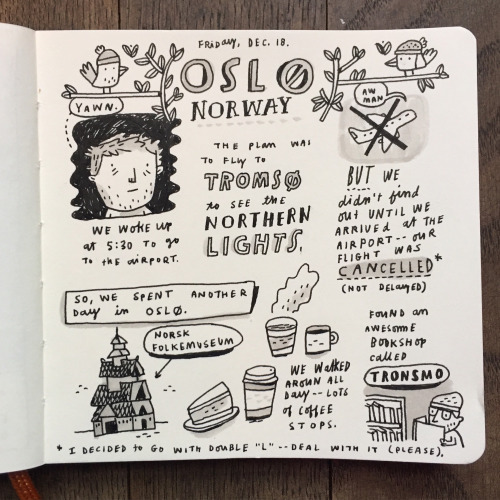 FRIDAY, DEC. 18.
OSLO
NORWAY
YAWN.
WE WOKE UP
at 5:30 TO go
To the airport.
THE PLAN WAS
TO FLY TO
TROMSØ
to SEE the
NORTHERN
LIGHTS.
AW
MAN
BUT WE
didn't find
out UNTIL WE
ARRIVED at THE
AIRPORT -- OUR
FLIGHT WAS
CANCELLED*
(NOT DELAYED)
SO, WE SPENT ANOTHER
Day in OSLØ.
NORSK
FOLKEMUSEUM
WE WALKED
AROUN ALL
Day -- LOTS
of COFFEE
STOPS.
FOUND AN
AWESOME
BOOKSHOP
called
TRONSMO
* I DECIDED to GO WITH DOUBLE "L" -- DEAL WITH IT (PLEASE).